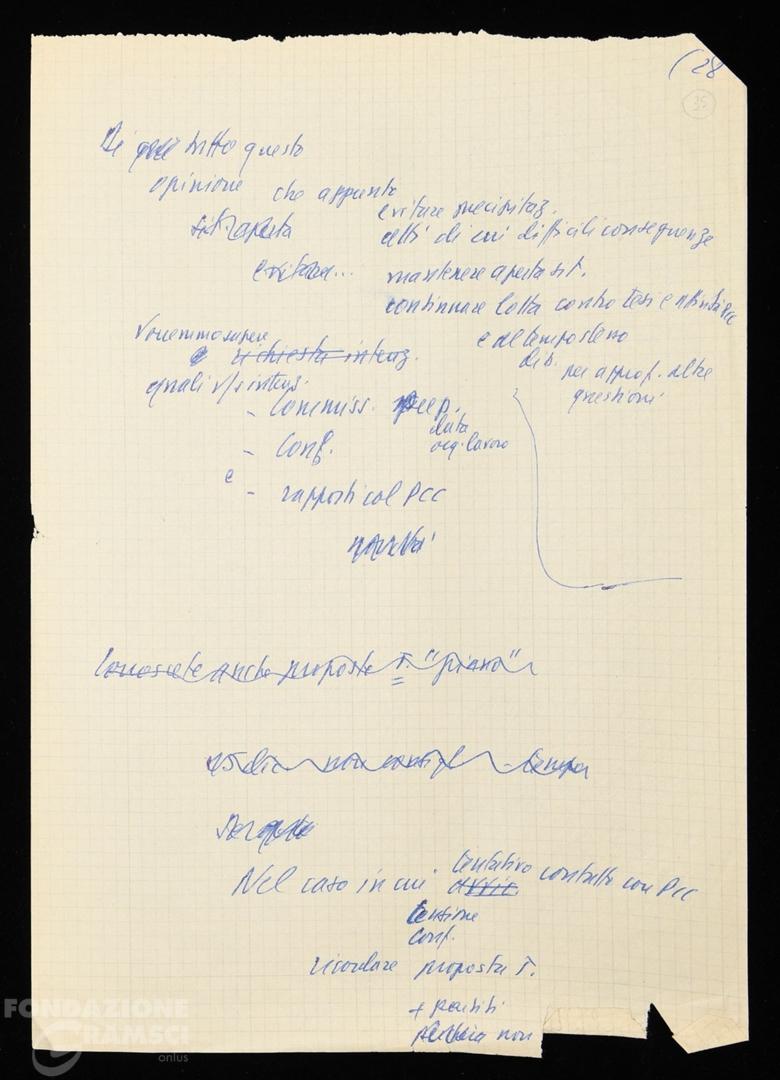 (28
35
Di tutto questo
opinione che appunto
evitare precipitaz.
sit. aperta
atti di cui difficili conseguenze
evitare...
mantenere aperta sit.
continuare lotta contro tesi e attività PCC
Vorremmo sapere
e al tempo stesso
e richiesta intenz.
dib. per approf. altre
quali vs/ intenz.
questioni
- Commiss. prep.
data
- Conf.
org. lavoro
e
- rapporti col PCC
Conoscete anche proposte T. "piano"
Nel caso in cui tentativo contatto con PCC
tensione
conf.
ricordare proposta T.
+ partiti
non
FONDAZIONE
GRAMSCI
onlus